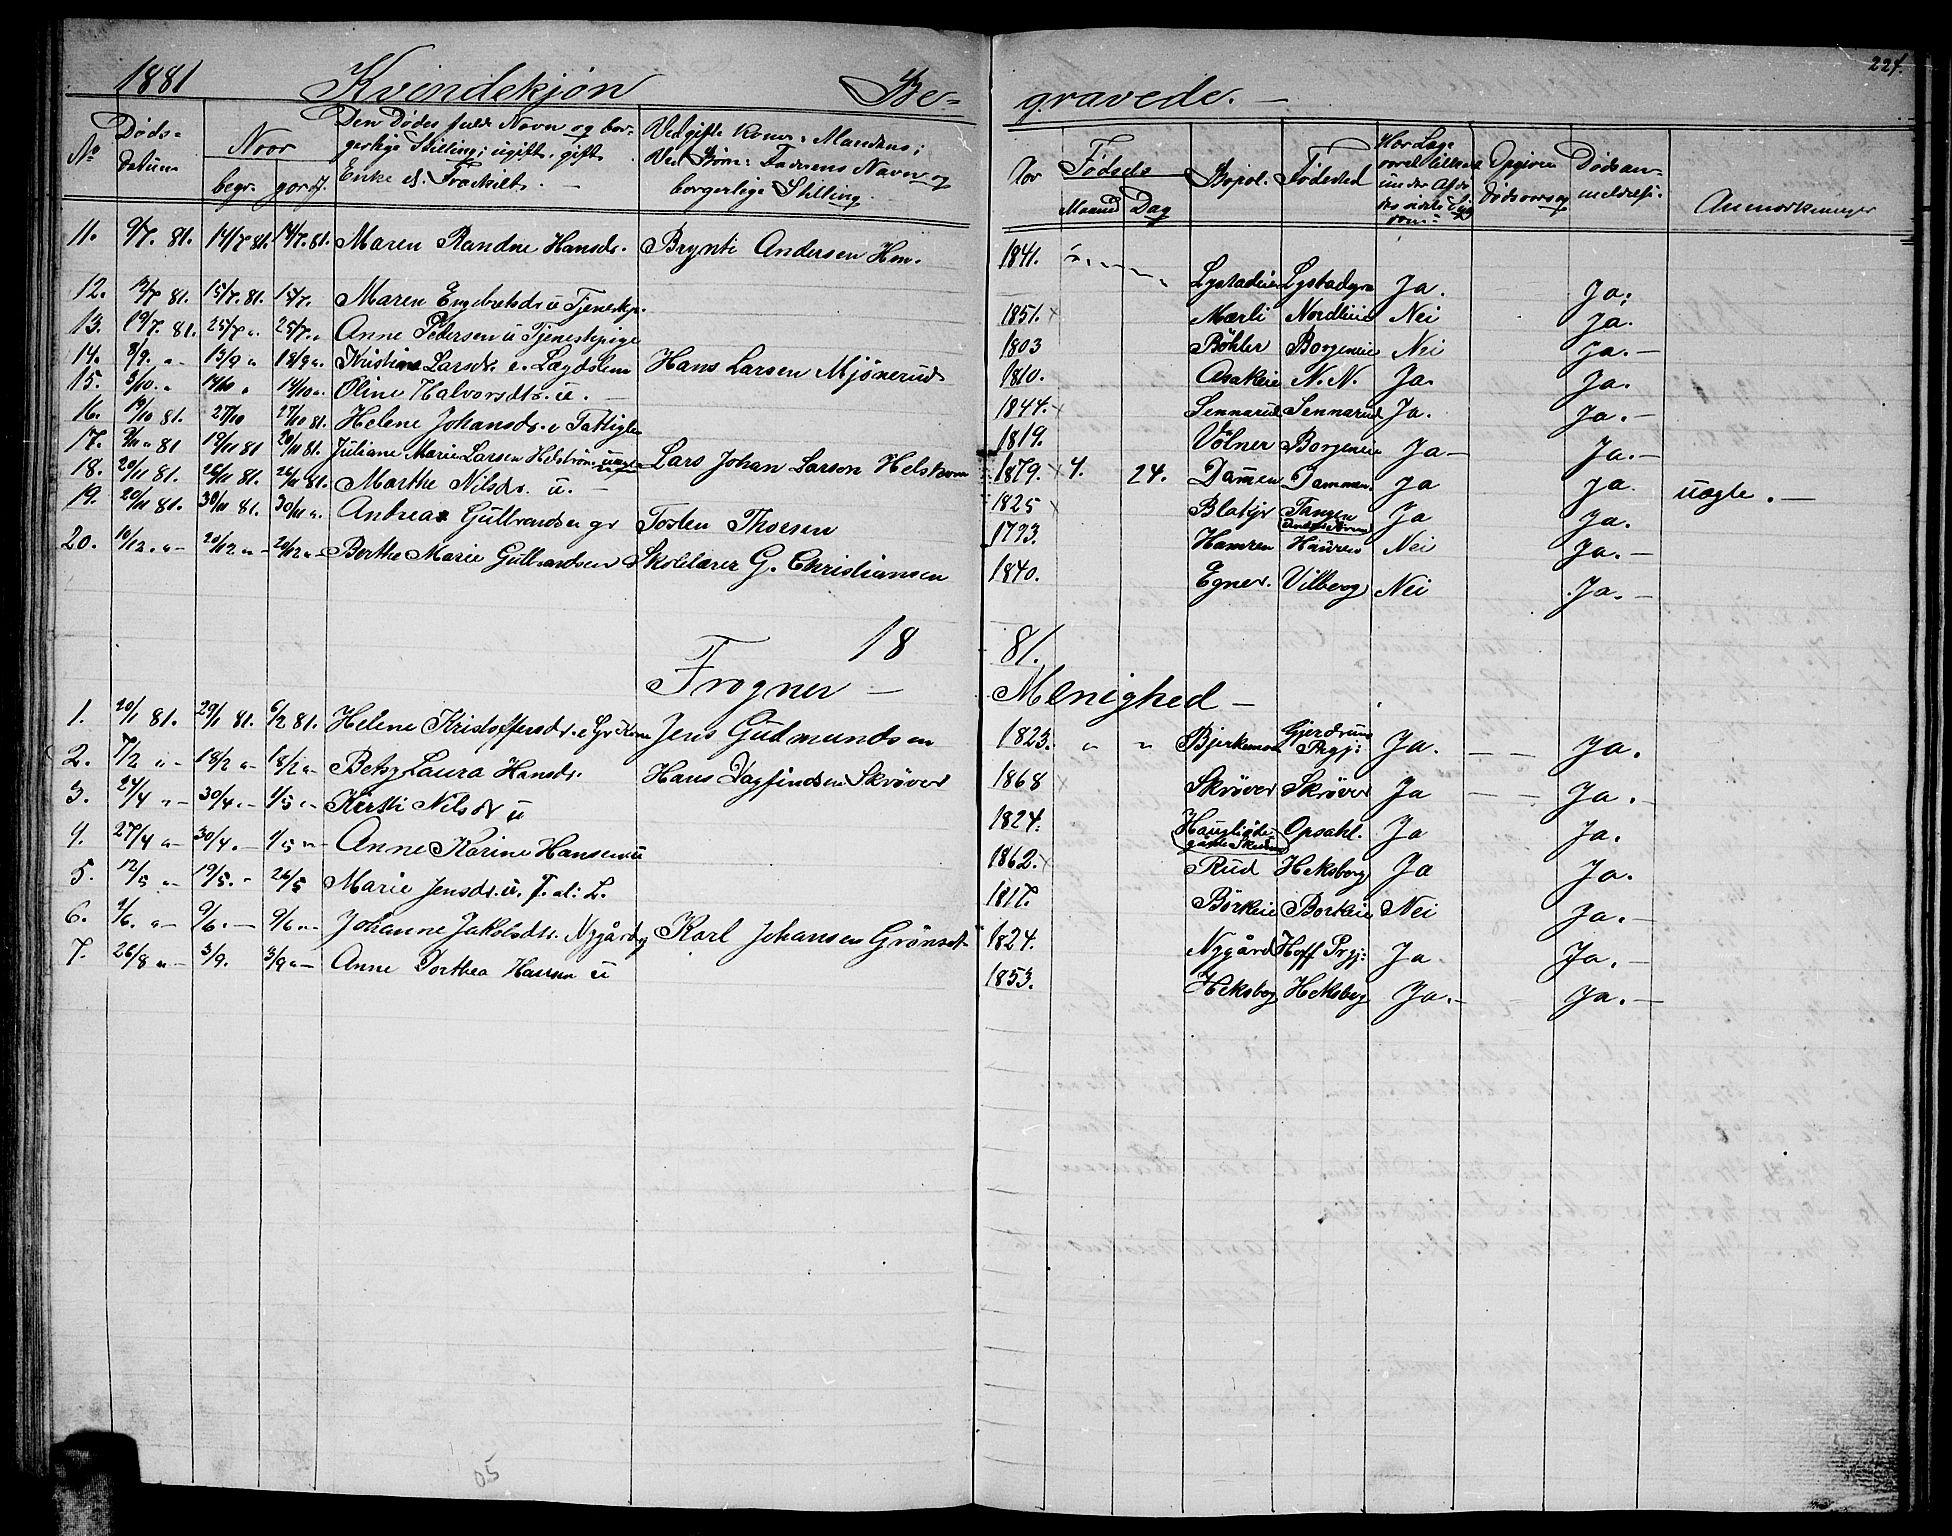 224.
1881 Kvindekjøn Be- gravede. —
No Døds- datum Naar begr. Den Dødes fulde Navn og bor- gerlige Stilling; ugift, gift Enke el. Fraskilt. — Ved gifte Koner: Mandens; Ved Børn: Faderens Navn og borgerlige Stilling. Aar Fødsels Maaned Dag Bopæl. Fødested Opgiven Dødsaarsag Dødsan- meldelse. Anmærkninger
11. 9/7. 81. 14/7 81. 14/7 81. Maren Randne Hansdr. Brynti Andersen Hm. 1841. Ja. Ja.
12. 12/7 81. 15/7. 81. 15/7. Maren Engebretsdr. u Tjenestp. 1851. x Mærli Nordlieie Nei Ja.
13. 19/7. 81. 25/7 „ 25/7. „ Anne Pedersen u Tjenestepige 1803 Bøhler Borgeneie Nei Ja. —
14. 8/9. „ - 13/9 „ 18/9 „ Kristine Larsdr. e. Lægdslem Hans Larsen Mjønerud 1810. Asakeie N. N. Ja. Ja.
15. 3/10. „ 14/10 „ 14/10 „ Oline Halvorsdtr. u. — 1844. x Sennerud Sennerud Ja. Ja. —
16. 19/10 81. 27/10 27/10 81. Helene Johansdr. u Fattiglem 1819. Vølner Borgeneie Ja — Ja. —
17. 9/11 „ 81 19/11 81 20/11 81. Juliane Marie Larsen Helstrøm uægte Lars Johan Larsen Helstrom 1879. x 4. 24. Dammen Dammen. Ja Ja. uægte. —
18. 20/11 81. 26/11 81. 26/11 81. Marthe Nilsdr. u. — 1825 x Blakjr Tangen Ja Ja.
19. 20/11 81. 30/11 81. 30/11 „. Andrea Gulbrandsen gr Tosten Thoesen 1793. Hamren Nei Ja. —
20. 10/12. „ - 20/12 „ - 20/12 „ - Berthe Marie Gulbrandsen Skolelærer G. Christiansen 1840. Egner. Vilberg Nei Ja. —
18 81.
Frogner — Menighed —
1. 20/1 81. 29/1 81. 6/2 81. Helene Kristoffersdr. e Jens Gudmundsen 1823. „ „ Bjerkemoen Gjerdrums Prgj: Ja. — — Ja.
2. 7/2 „ - 18/2 „ - 18/2 „ - Betsy Laura Hansdr. Hans Dagfindsen Skrøver 1868 x Skrøver Skrøver Ja — — Ja. —
3. 24/4 „ - 30/4. „ - 1/5 „ - Kersti Nilsdr u 1824. Opsahl. Ja Ja.
4. 27/4 „ - 30/4. „ - 1/5 „ - Anne Karine Hansen u 1862. x Rud Heksberg Ja Ja.
5. 12/5 „ - 19/5. „ 26/5 Marie Jensdr. u. F. al: L. 1817. Børkeie Borkeie Nei Ja. —
6. 1/6. „ - 9/6. — 9/6 „ - Johanne Jakobsdtr. Nygård Karl Johansen Grønset 1824. Nygård Hoff Prgj: Ja. Ja. —
7. 26/8 „ - 3/9. 3/9 „ — Anne Dorthea Hansen u 1853. Heksberg Heksberg Ja. — Ja. —
05